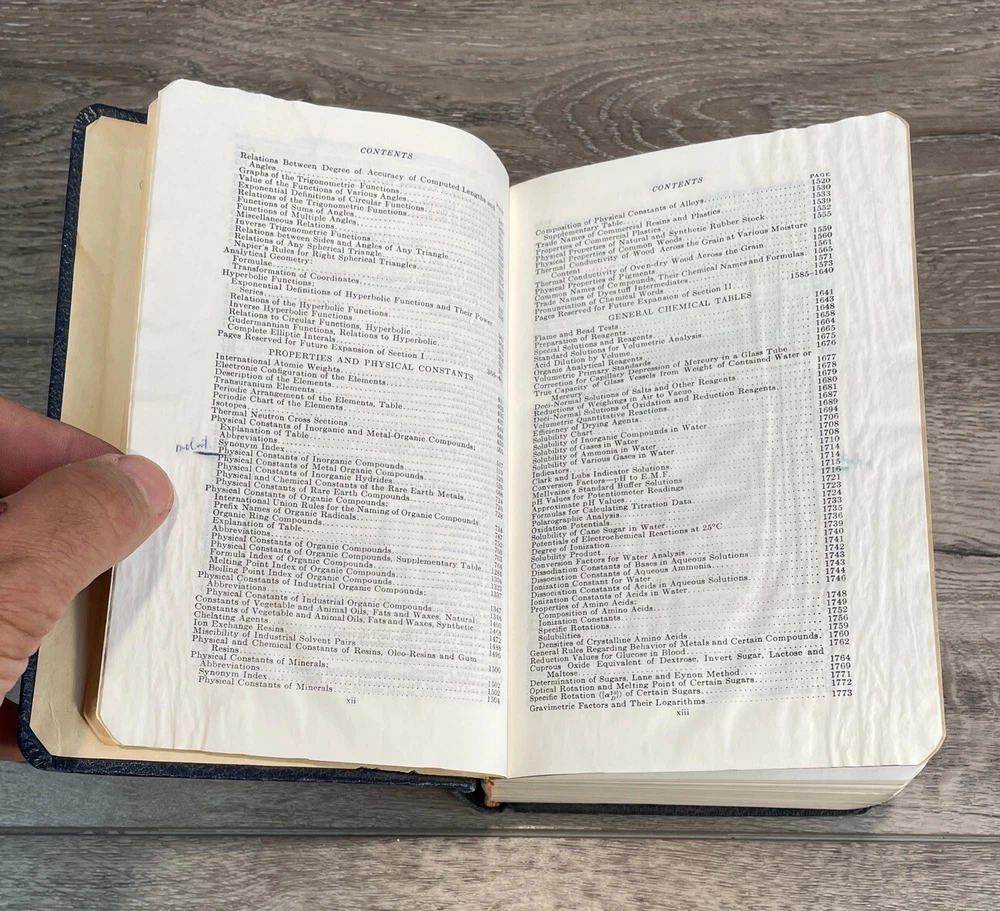 CONTENTS
Relations Between Degree of Accuracy of Computed Lengths and
Angles
Graphs of the Trigonometric Functions
Value of the Functions of Various Angles
Exponential Definitions of Circular Functions
Relations of the Trigonometric Functions
Functions of Sums of Angles
Functions of Multiple Angles
Miscellaneous Relations
Inverse Trigonometric Functions
Relations between Sides and Angles of Any Triangle
Relations of Any Spherical Triangle
Napier's Rules for Right Spherical Triangles
Analytical Geometry:
Formulae
Transformation of Coordinates
Hyperbolic Functions:
Exponential Definitions of Hyperbolic Functions and Their Power
Series
Relations of the Hyperbolic Functions
Inverse Hyperbolic Functions
Relations to Circular Functions, Hyperbolic
Gudermannian Functions, Relations to Hyperbolic
Complete Elliptic Interals
Pages Reserved for Future Expansion of Section I
PROPERTIES AND PHYSICAL CONSTANTS
International Atomic Weights
Electronic Configuration of the Elements
Description of the Elements
Transuranium Elements
Periodic Arrangement of the Elements, Table
Periodic Chart of the Elements
Isotopes
Thermal Neutron Cross Sections
Physical Constants of Inorganic and Metal-Organic Compounds:
Explanation of Table
Abbreviations
Synonym Index
Physical Constants of Inorganic Compounds
Physical Constants of Metal Organic Compounds
Physical Constants of Inorganic Hydrides
Physical and Chemical Constants of the Rare Earth Metals
Physical Constants of Rare Earth Compounds
Physical Constants of Organic Compounds:
International Union Rules for the Naming of Organic Compounds
Prefix Names of Organic Radicals
Organic Ring Compounds
Explanation of Table
Abbreviations
Physical Constants of Organic Compounds
Physical Constants of Organic Compounds, Supplementary Table
Formula Index of Organic Compounds
Melting Point Index of Organic Compounds
Boiling Point Index of Organic Compounds
Physical Constants of Industrial Organic Compounds:
Abbreviations
Physical Constants of Industrial Organic Compounds
Constants of Vegetable and Animal Oils, Fats and Waxes, Natural
Constants of Vegetable and Animal Oils, Fats and Waxes, Synthetic
Chelating Agents
Ion Exchange Resins
Miscibility of Industrial Solvent Pairs
Physical and Chemical Constants of Resins, Oleo-Resins and Gum
Resins 1500
Physical Constants of Minerals:
Abbreviations 1502
Synonym Index 1502
Physical Constants of Minerals 1504
xii
CONTENTS
PAGE
Composition of Physical Constants of Alloys 1520
Supplementary Table 1530
Trade Names of Commercial Resins and Plastics 1533
Properties of Commercial Plastics 1539
Physical Properties of Natural and Synthetic Rubber Stock 1552
Physical Properties of Common Woods 1555
Thermal Conductivity of Wood Across the Grain at Various Moisture
Content 1559
Thermal Conductivity of Over-dry Wood Across the Grain 1560
Physical Properties of Pigments 1561
Common Names of Compounds, Their Chemical Names and Formulas 1565
Trade Names of Dyestuff Intermediates 1571
Pronunciation of Chemical Words 1573
Pages Reserved for Future Expansion of Section II 1585-1640
GENERAL CHEMICAL TABLES
Flame and Bead Tests 1641
Preparation of Reagents 1643
Special Solutions and Reagents 1648
Standard Solutions for Volumetric Analysis 1658
Acid Dilution by Volume 1664
Organic Analytical Reagents 1665
Volumetric Primary Standards 1675
Correction for Capillary Depression of Mercury in a Glass Tube 1676
True Capacity of Glass Vessels from Weight of Contained Water or
Mercury 1677
Deci-Normal Solutions of Salts and Other Reagents 1678
Reductions of Weighings in Air to Vacuo 1679
Deci-Normal Solutions of Oxidation and Reduction Reagents 1680
Volumetric Quantitative Reactions 1681
Efficiency of Drying Agents 1687
Solubility Chart 1689
Solubility of Inorganic Compounds in Water 1694
Solubility of Gases in Water 1706
Solubility of Ammonia in Water 1708
Solubility of Various Gases in Water 1708
Indicators 1710
Clark and Lubs Indicator Solutions 1714
Conversion Factors—pH to E.M.F. 1714
McIlvaine's Standard Buffer Solutions 1715
pH Values for Potentiometer Readings 1716
Approximate pH Values 1721
Formulas for Calculating Titration Data 1723
Polarographic Analysis 1724
Oxidation Potentials 1733
Solubility of Cane Sugar in Water 1735
Potentials of Electrochemical Reactions at 25°C 1736
Degree of Ionization 1739
Solubility Product 1740
Conversion Factors for Water Analysis 1741
Dissociation Constants of Bases in Aqueous Solutions 1742
Dissociation Constants of Aqueous Ammonia 1743
Ionization Constant for Water 1743
Dissociation Constants of Acids in Aqueous Solutions 1744
Ionization Constants of Acids in Water 1746
Properties of Amino Acids:
Composition of Amino Acids 1748
Ionization Constants 1749
Specific Rotations 1752
Solubilities 1756
Densities of Crystalline Amino Acids 1759
General Rules Regarding Behavior of Metals and Certain Compounds 1760
Reduction Values for Glucose in Blood 1762
Cuprous Oxide Equivalent of Dextrose, Invert Sugar, Lactose and
Maltose 1764
Determination of Sugars, Lane and Eynon Method 1769
Optical Rotation and Melting Point of Certain Sugars 1771
Specific Rotation of Certain Sugars 1772
Gravimetric Factors and Their Logarithms 1773
xiii